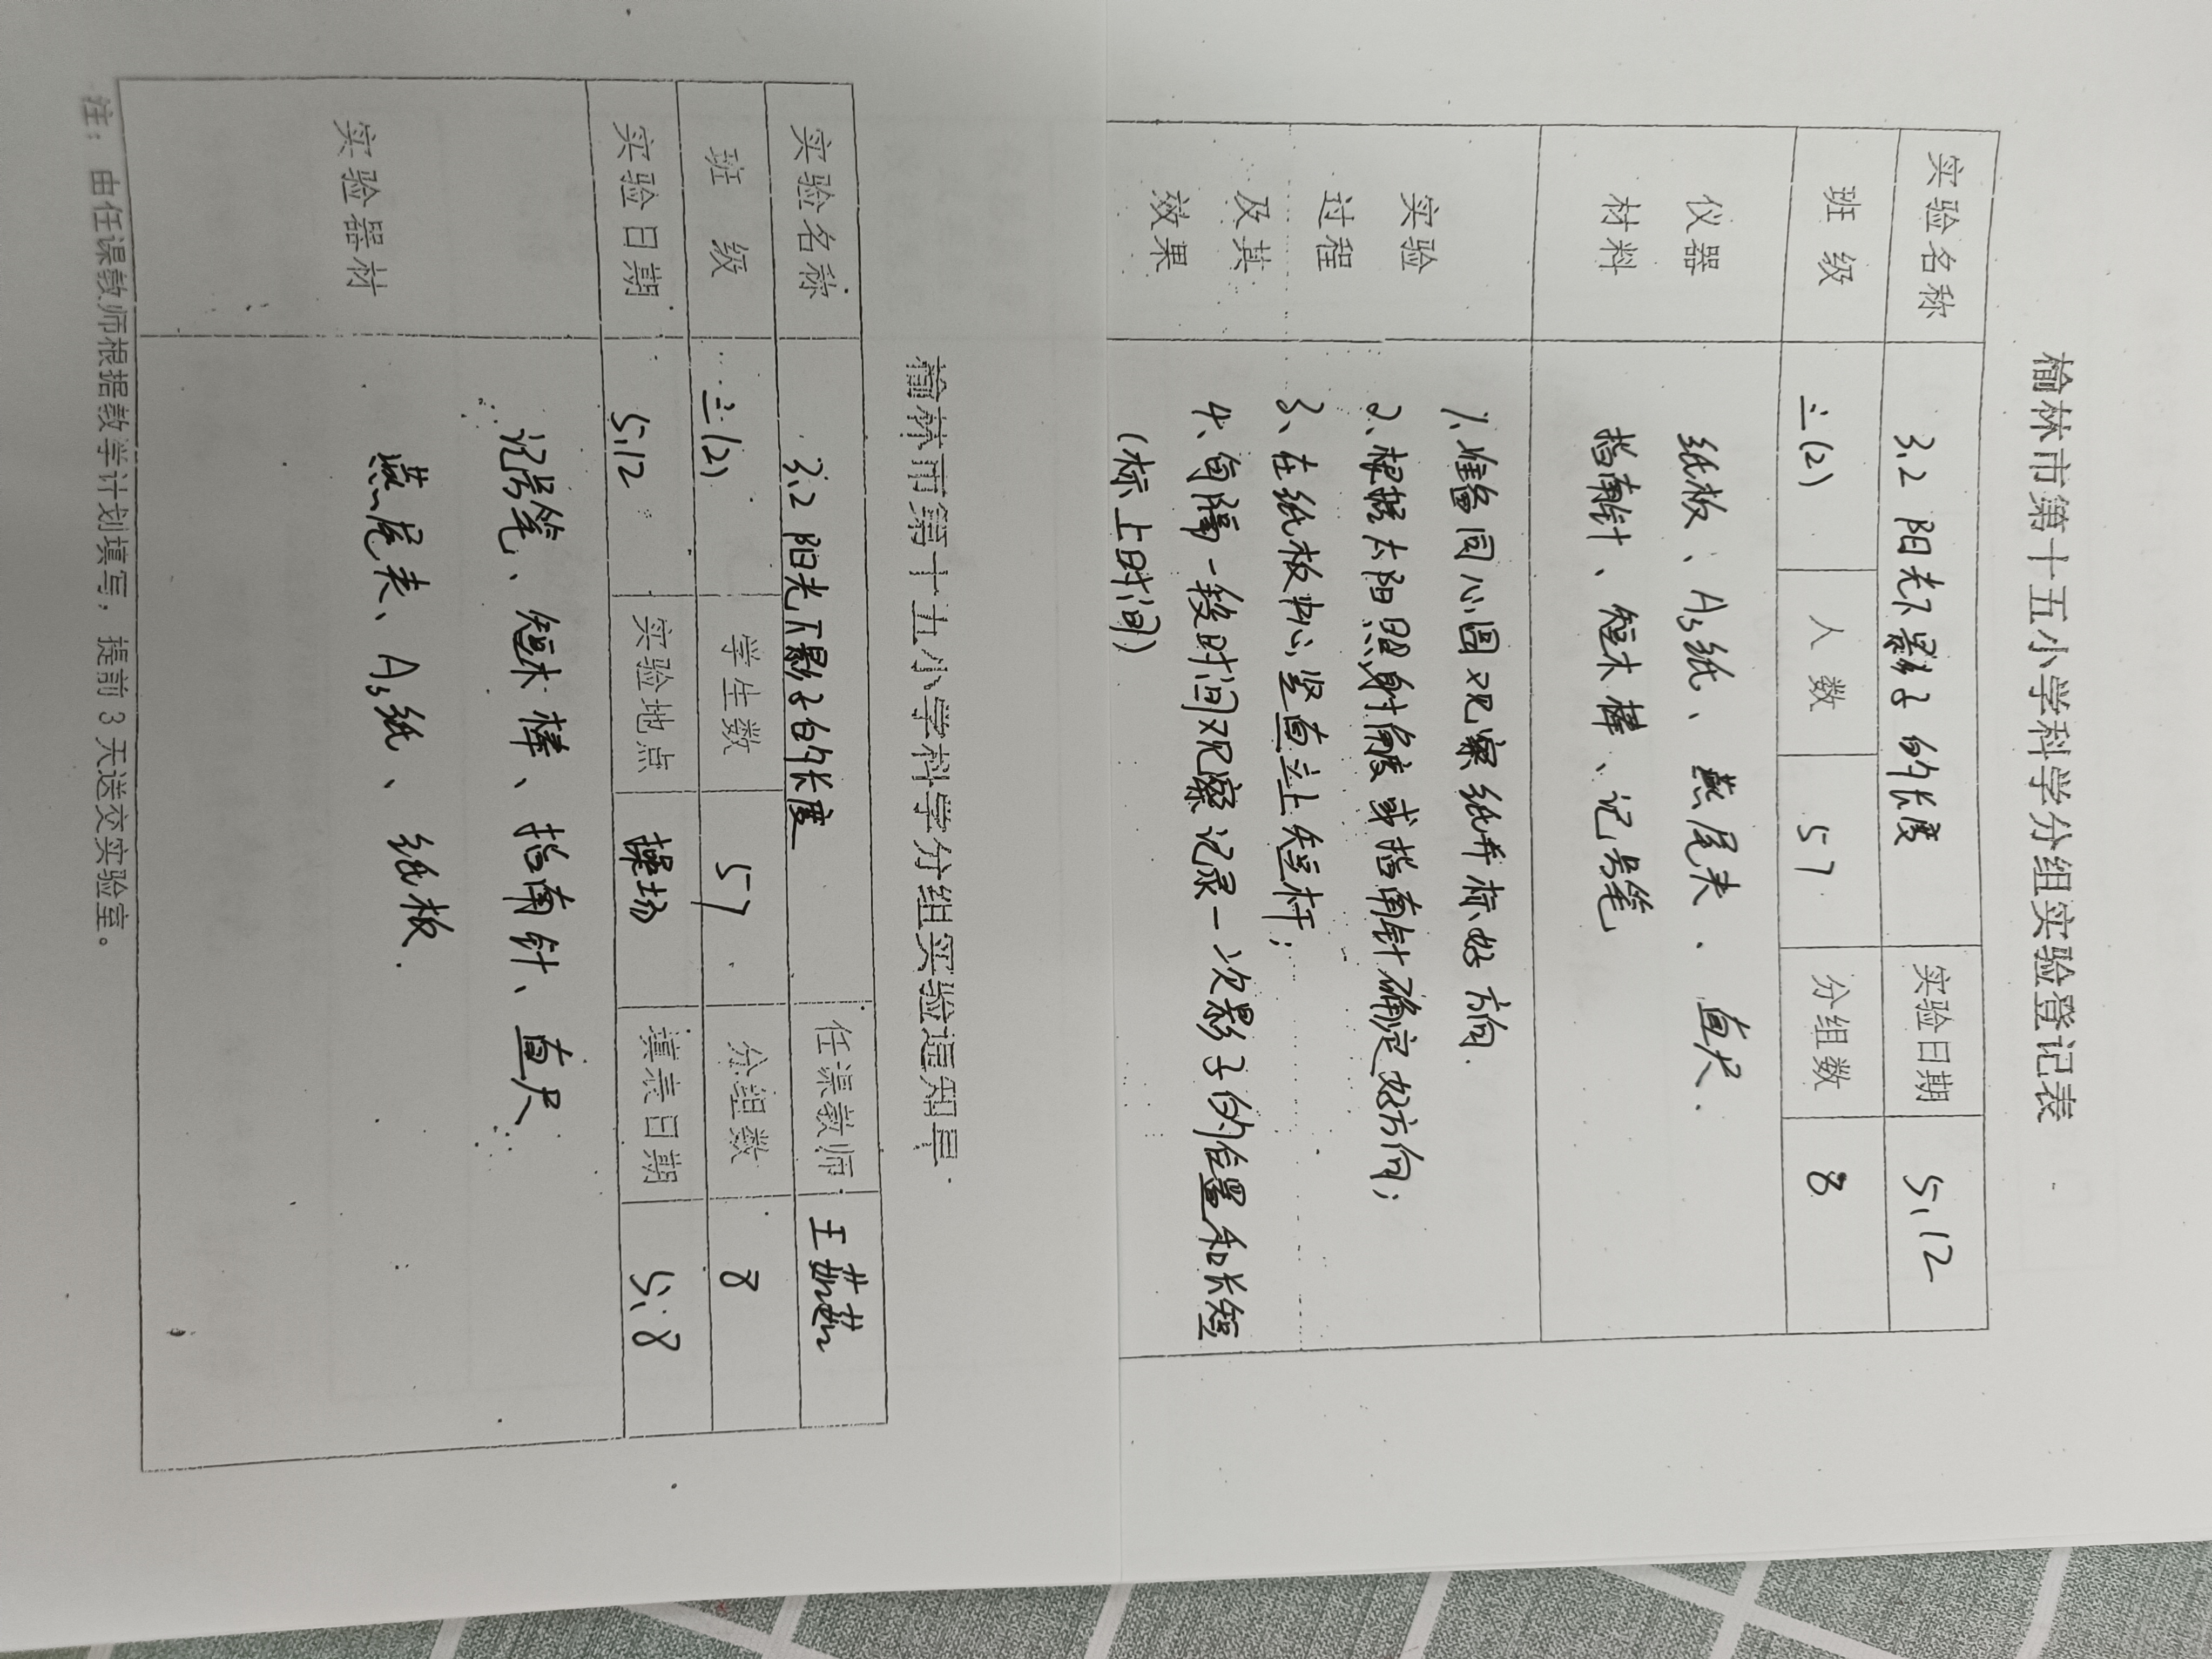 榆林市第十五小学科学分组实验登记表
实验名称 3.2 阳光下影子的长度 实验日期 5.12
班 级 三(2) 人 数 57 分组数 8
仪器 纸板、A3纸、燕尾夹、直尺.
材料 指南针、短木棒、记号笔
实验 1.准备同心圆观察纸并标好方向.
过程 2、根据太阳照射角度或指南针确定好方向;
及其 3、在纸板中心竖直立上短杆;
效果 4、每隔一段时间观察记录一次影子的位置和长短
(标上时间)
榆林市第十五小学科学分组实验通知单
实验名称 3.2 阳光下影子的长度 任课教师 王茹茹
班 级 三(2) 学生数 57 分组数 8
实验日期 5.12 实验地点 操场 填表日期 5.8
实验器材 记号笔、短木棒、指南针、直尺
燕尾夹、A3纸、纸板.
注: 由任课教师根据教学计划填写, 提前 3 天送交实验室。